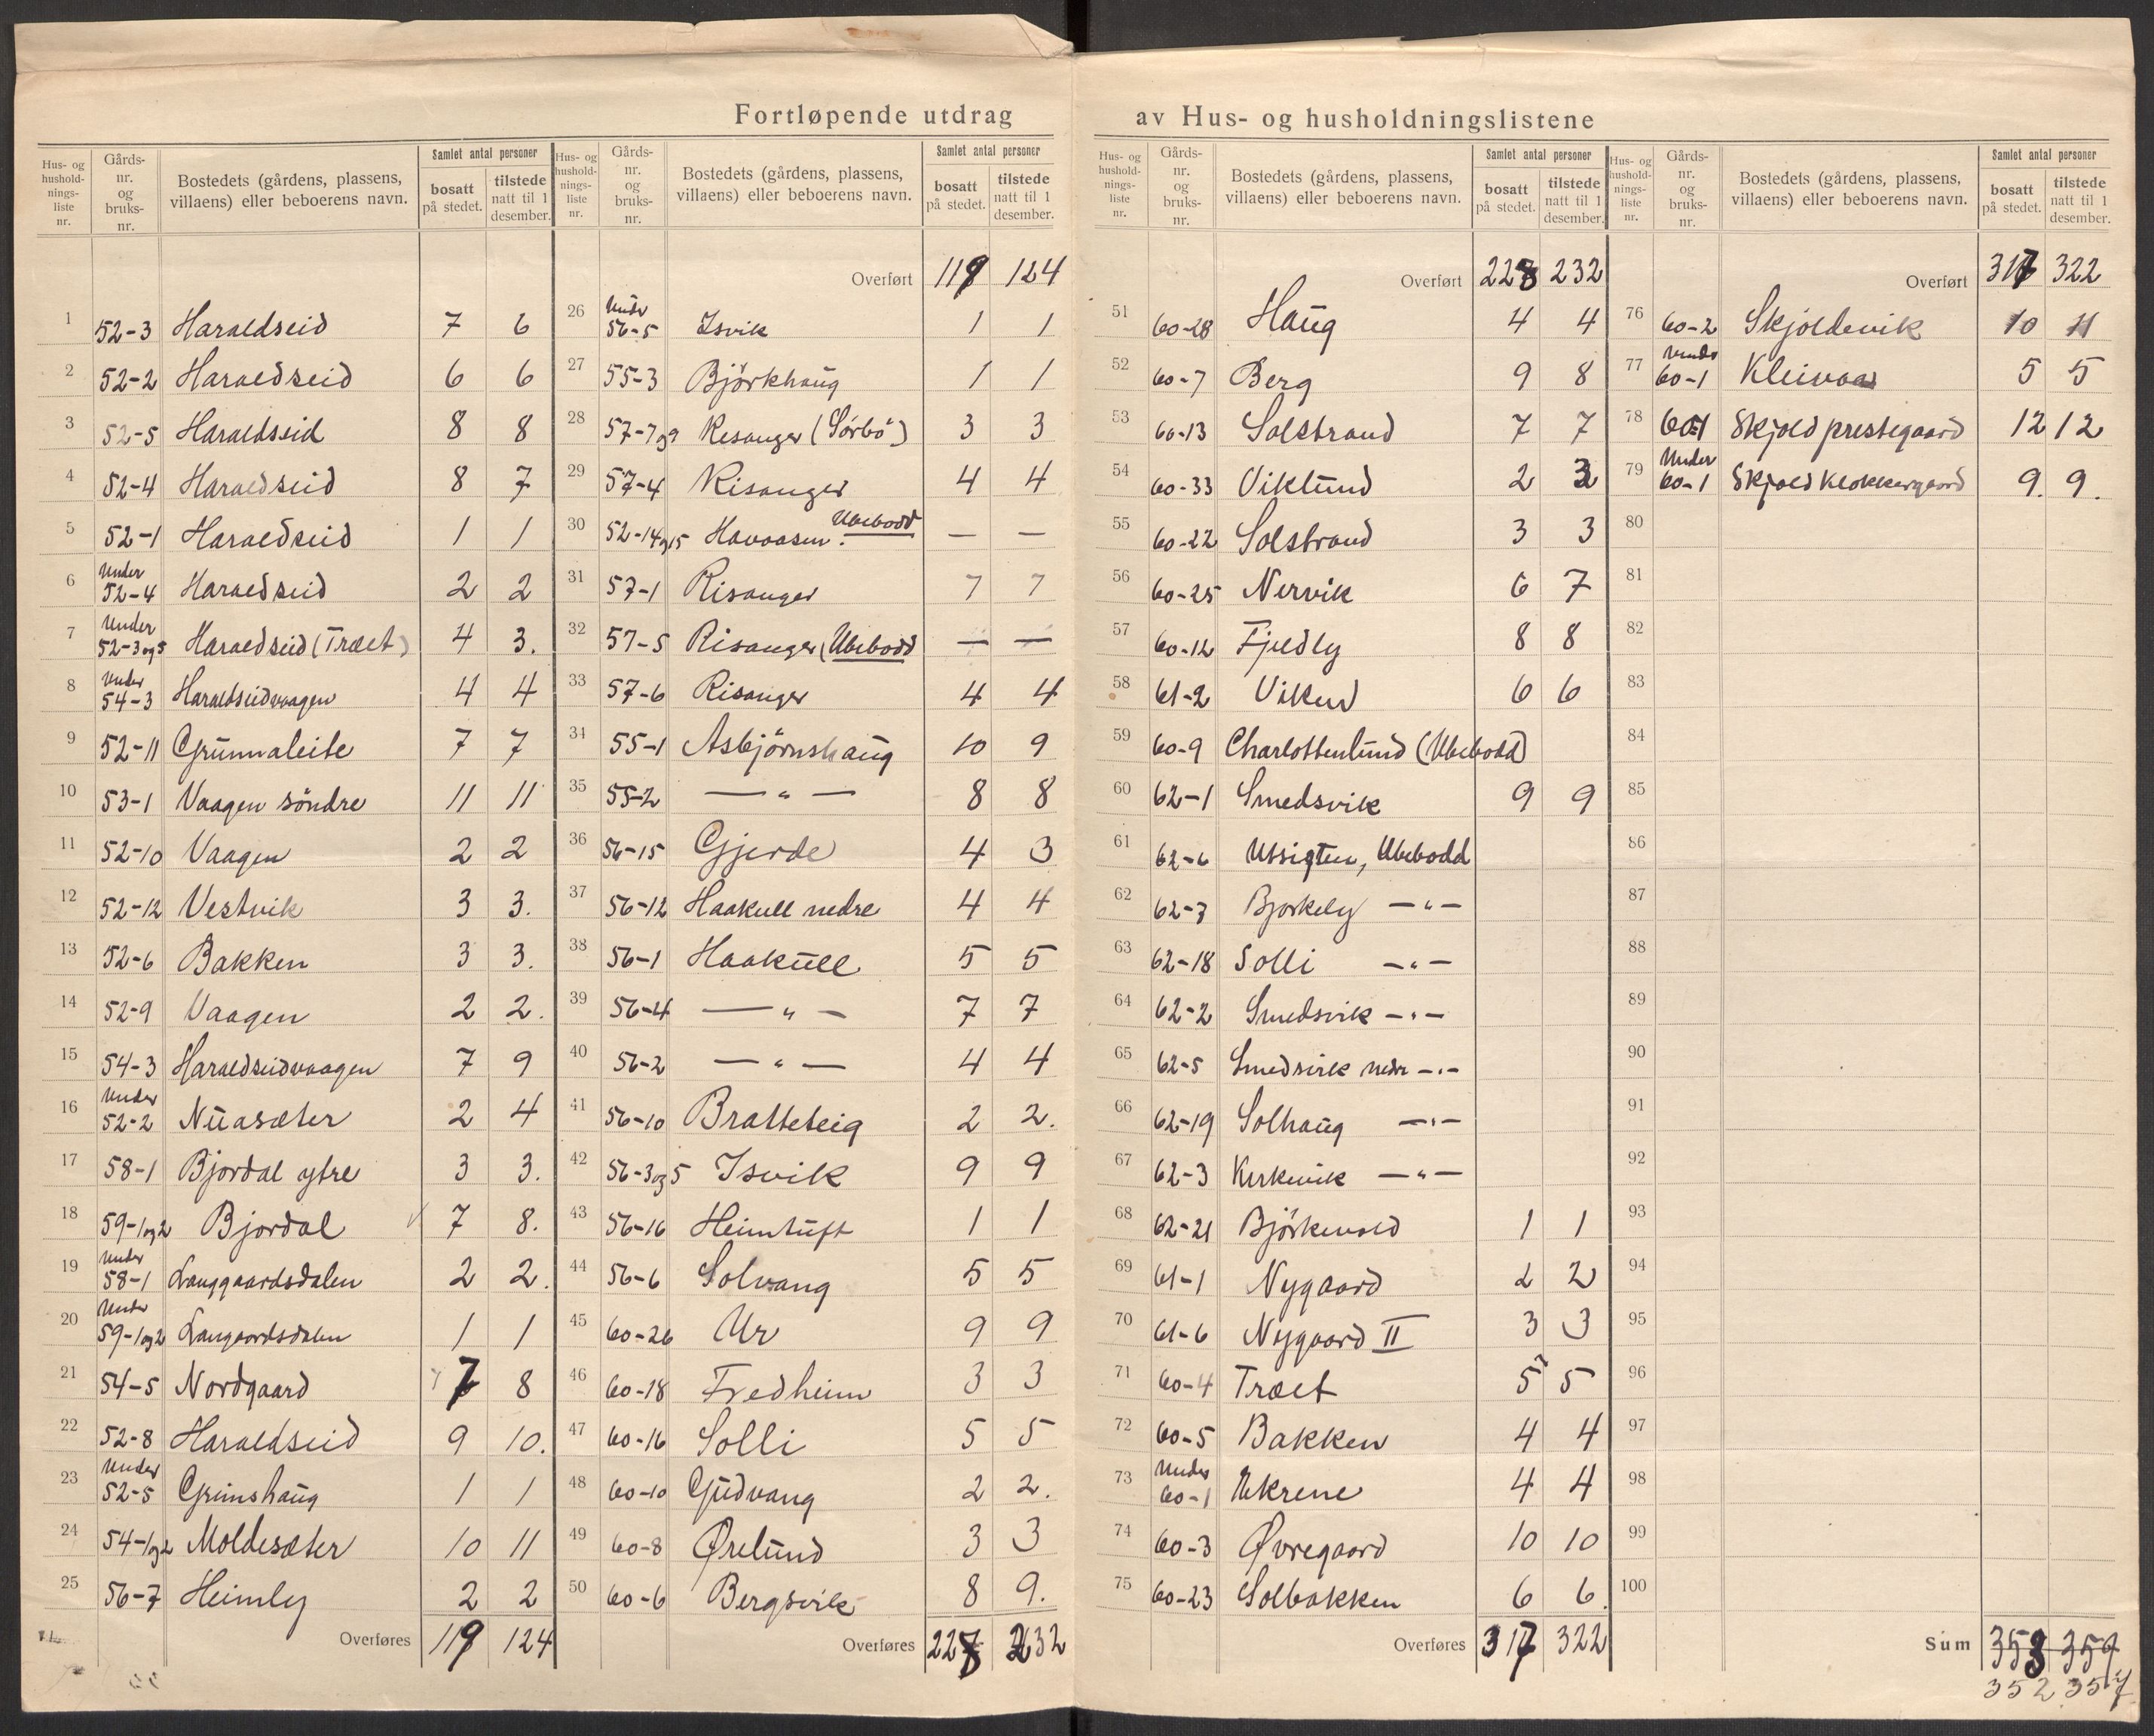 Fortløpende utdrag av Hus- og husholdningslistene
Hus- og husholdningsliste nr. Gårdsnr. og bruksnr. Bostedets (gårdens, plassens, villaens) eller beboerens navn. Samlet antal personer bosatt på stedet. tilstede natt til 1 desember.
1 52-3 Haraldseid 7 6
2 52-2 Haraldseid 6 6
3 52-5 Haraldseid 8 8
4 52-4 Haraldseid 8 7
5 52-1 Haraldseid 1 1
6 Under 52-4 Haraldseid 2 2
7 Under 52-3 og 5 Haraldseid (Træet) 4 3.
8 Under 54-3 Haraldseidvaagen 4 4
9 52-11 Grunnaleite 7 7
10 53-1 Vaagen söndre 11 11
11 52-10 Vaagen 2 2
12 52-12 Vestvik 3 3.
13 52-6 Bakken 3 3.
14 52-9 Vaagen 2 2.
15 54-3 Haraldseidvaagen 7 9
16 Under 52-2 Nuasæter 2 4
17 58-1 Bjordal ytre 3 3.
18 59-1 og 2 Bjordal 7 8.
19 Under 58-1 Langgaardsdalen 2 2.
20 Under 59-1 og 2 Langaardsdalen 1 1
21 54-5 Nordgaard 7 8
22 52-8 Haraldseid 9 10.
23 Under 52-5 Grimshaug 1 1
24 54-1 og 2 Moldesæter 10 11
25 56-7 Heimly 2 2
Overføres 119 124
Hus- og husholdningsliste nr. Gårdsnr. og bruksnr. Bostedets (gårdens, plassens, villaens) eller beboerens navn. Samlet antal personer bosatt på stedet. tilstede natt til 1 desember.
Overført 119 124
26 Under 56-5 Isvik 1 1
27 55-3 Björkhaug 1 1
28 57-7 og 9 Risanger (Sörbö) 3 3
29 57-4 Risanger 4 4
30 52-14 og 15 Havaasen. Ubebodd — —
31 57-1 Risanger 7 7
32 57-5 Risanger (Ubebodd — —
33 57-6 Risanger 4 4
34 55-1 Asbjörnshaug 10 9
35 55-2 — " — 8 8
36 56-15 Gjerde 4 3
37 56-12 Haakull nedre 4 4
38 56-1 Haakull 5 5
39 56-4 — " — 7 7
40 56-2 — " — 4 4
41 56-10 Bratteteig 2 2.
42 56-3 og 5 Isvik 9 9
43 56-16 Heimtuft 1 1
44 56-6 Solvang 5 5
45 60-26 Ur 9 9
46 60-18 Fredheim 3 3
47 60-16 Solli 5 5
48 60-10 Gudvang 2 2.
49 60-8 Ørelund 3 3
50 60-6 Bergsvik 8 9.
Overføres 228 232
Hus- og husholdningsliste nr. Gårdsnr. og bruksnr. Bostedets (gårdens, plassens, villaens) eller beboerens navn. Samlet antal personer bosatt på stedet. tilstede natt til 1 desember.
Overført 228 232
51 60-28 Haug 4 4
52 60-7 Berg 9 8
53 60-13 Solstrand 7 7
54 60-33 Viklund 2 3
55 60-22 Solstrand 3 3
56 60-25 Nervik 6 7
57 60-12 Fjeldly 8 8
58 61-2 Viken 6 6
59 60-9 Charlottenlund (Ubebodd)
60 62-1 Smedsvik 9 9
61 62-6 Utsigten, Ubebodd
62 62-7 Bjorkely — " —
63 62-18 Solli — " —
64 62-2 Smedsvik — " —
65 62-5 Smedsvik nedr — " —
66 62-19 Solhaug — " —
67 62-3 Kirkevik — " —
68 62-21 Björkevold 1 1
69 61-1 Nygaard 2 2
70 61-6 Nygaard II 3 3
71 60-4 Træet 5 5
72 60-5 Bakken 4 4
73 Under 60-1 Ekrene 4 4
74 60-3 Øvregaard 10 10
75 60-23 Solbakken 6 6.
Overføres 317 322
Hus- og husholdningsliste nr. Gårdsnr. og bruksnr. Bostedets (gårdens, plassens, villaens) eller beboerens navn. Samlet antal personer bosatt på stedet. tilstede natt til 1 desember.
Overført 317 322
76 60-2 Skjoldevik 10 11
77 Under 60-1 Kleivaa 5 5
78 60-1 Skjold prestegaard 12 12
79 Under 60-1 Skjold Klokkergaard 9. 9.
80
81
82
83
84
85
86
87
88
89
90
91
92
93
94
95
96
97
98
99
100
Sum 353 359
352 357